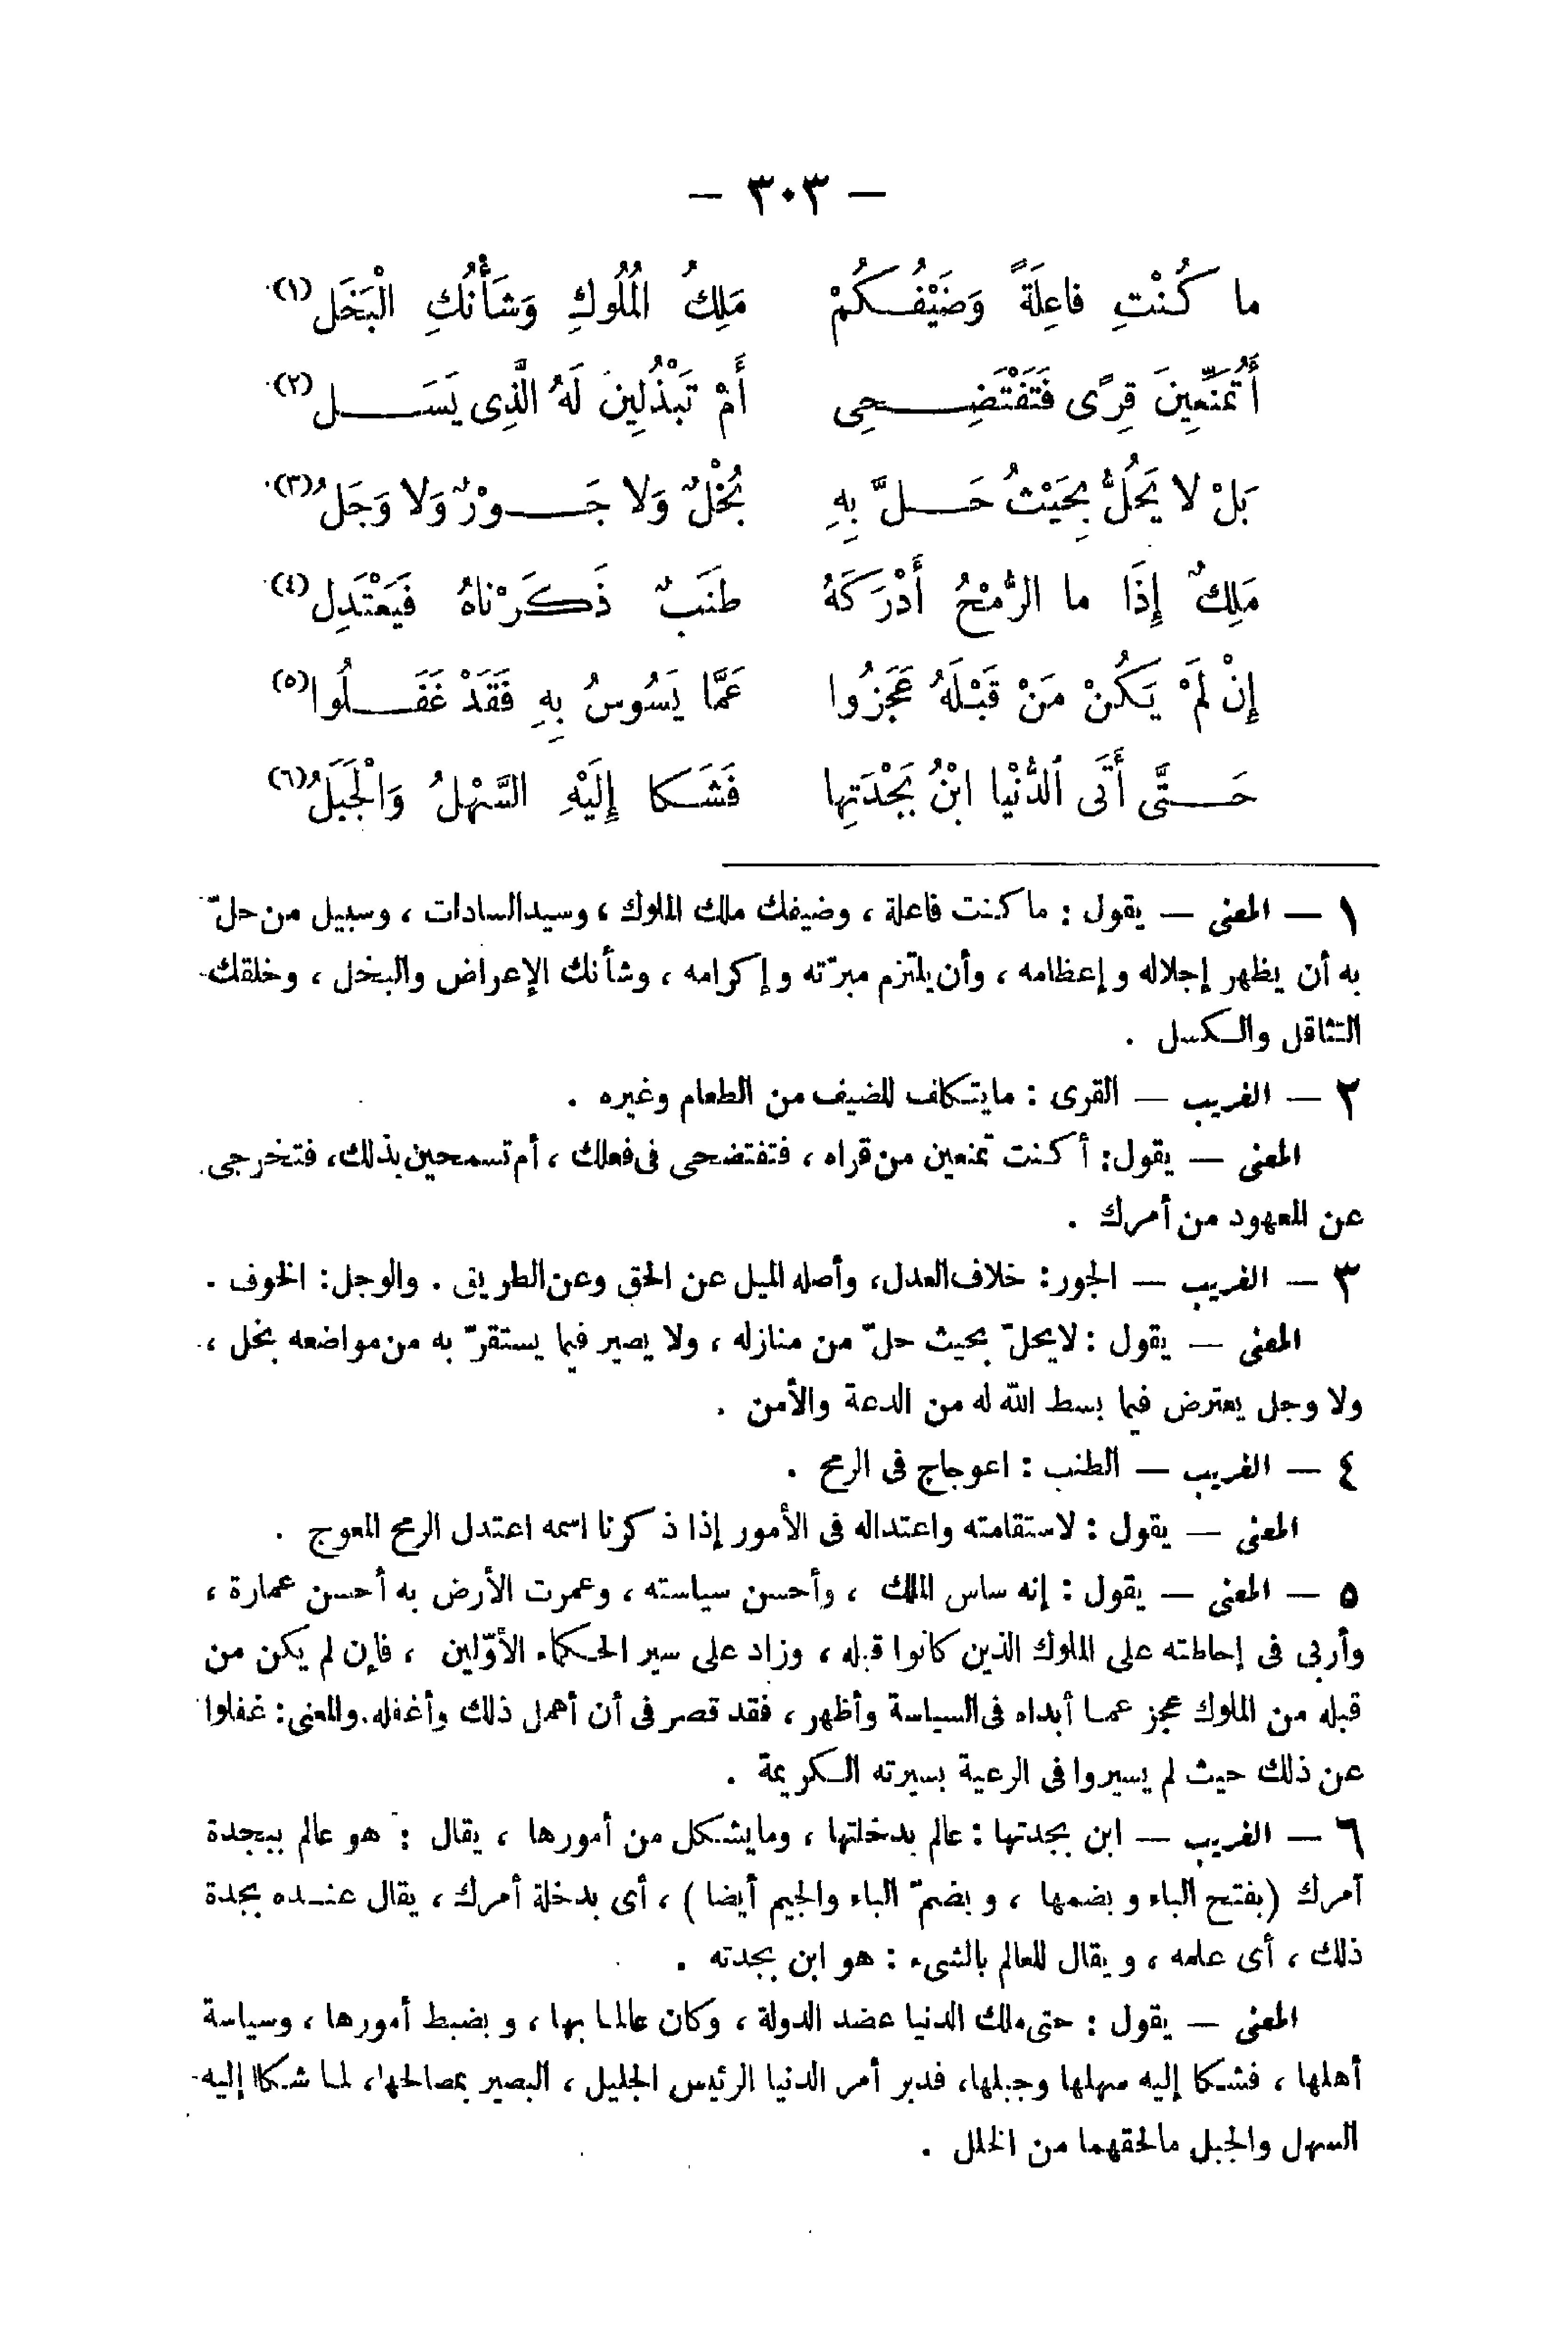 — ٣٠٣ —
ما كُنْتِ فاعِلَةً وَضَيْفُكُمْ مَلِكُ المُلُوكِ وَشَأْنُكِ الْبَخَل(١)
أَتُمَنِّعِينَ قِرًى فَتَفْتَضِحِى أَمْ تَبْذُلِينَ لَهُ الَّذِى يَسَل(٢)
بَلْ لا يَحُلُّ بِحَيْثُ حَلَّ بِهِ بُخْلٌ وَلا جَوْرٌ وَلا وَجَلُ(٣)
مَلِكٌ إِذَا ما الرُّمْحُ أَدْرَكَهُ طَنَبٌ ذَكَرْناهُ فَيَعْتَدِل(٤)
إِنْ لَمْ يَكُنْ مَنْ قَبْلَهُ عَجَزُوا عَمَّا يَسُوسُ بِهِ فَقَدْ غَفَلُوا(٥)
حَتَّى أَتَى الدُّنْيا ابْنُ بَجْدَتِها فَشَكا إِلَيْهِ السَّهْلُ وَالْجَبَلُ(٦)
١ — المعنى — يقول : ما كنت فاعلة ، وضيفك ملك الملوك ، وسيد السادات ، وسبيل من حلّ
به أن يظهر إجلاله وإعظامه ، وأن يلتزم مبرّته وإكرامه ، وشأنك الإعراض والبخل ، وخلقك
التثاقل والكسل .
٢ — الغريب — القرى : مايتكلف للضيف من الطعام وغيره .
المعنى — يقول: أكنت تمنعين من قراه ، فتفتضحى فى فعلك ، أم تسمحين بذلك، فتخرجى
عن المعهود من أمرك .
٣ — الغريب — الجور: خلاف العدل، وأصله الميل عن الحق وعن الطريق . والوجل: الخوف .
المعنى — يقول : لايحلّ بحيث حلّ من منازله ، ولا يصير فيما يستقرّ به من مواضعه بخل ،
ولا وجل يعترض فيما بسط الله له من الدعة والأمن .
٤ — الغريب — الطنب : اعوجاج فى الرمح .
المعنى — يقول : لاستقامته واعتداله فى الأمور إذا ذكرنا اسمه اعتدل الرمح المعوج .
٥ — المعنى — يقول : إنه ساس الملك ، وأحسن سياسته ، وعمرت الأرض به أحسن عمارة ،
وأربى فى إحاطته على الملوك الذين كانوا قبله ، وزاد على سير الحكماء الأوّلين ، فإن لم يكن من
قبله من الملوك عجز عما أبداه فى السياسة وأظهر ، فقد قصر فى أن أهمل ذلك وأغفله. والمعنى: غفلوا
عن ذلك حيث لم يسيروا فى الرعية بسيرته الكريمة .
٦ — الغريب — ابن بجدتها : عالم بدخلتها ، ومايشكل من أمورها ، يقال : هو عالم ببجدة
أمرك (بفتح الباء وبضمها ، وبضمّ الباء والجيم أيضا) ، أى بدخلة أمرك ، يقال عنده بجدة
ذلك ، أى علمه ، ويقال للعالم بالشىء : هو ابن بجدته .
المعنى — يقول : حتى ملك الدنيا عضد الدولة ، وكان عالما بها ، وبضبط أمورها ، وسياسة
أهلها ، فشكا إليه سهلها وجبلها، فدبر أمر الدنيا الرئيس الجليل ، البصير بمصالحها، لما شكا إليه
السهل والجبل مالحقهما من الخلل .